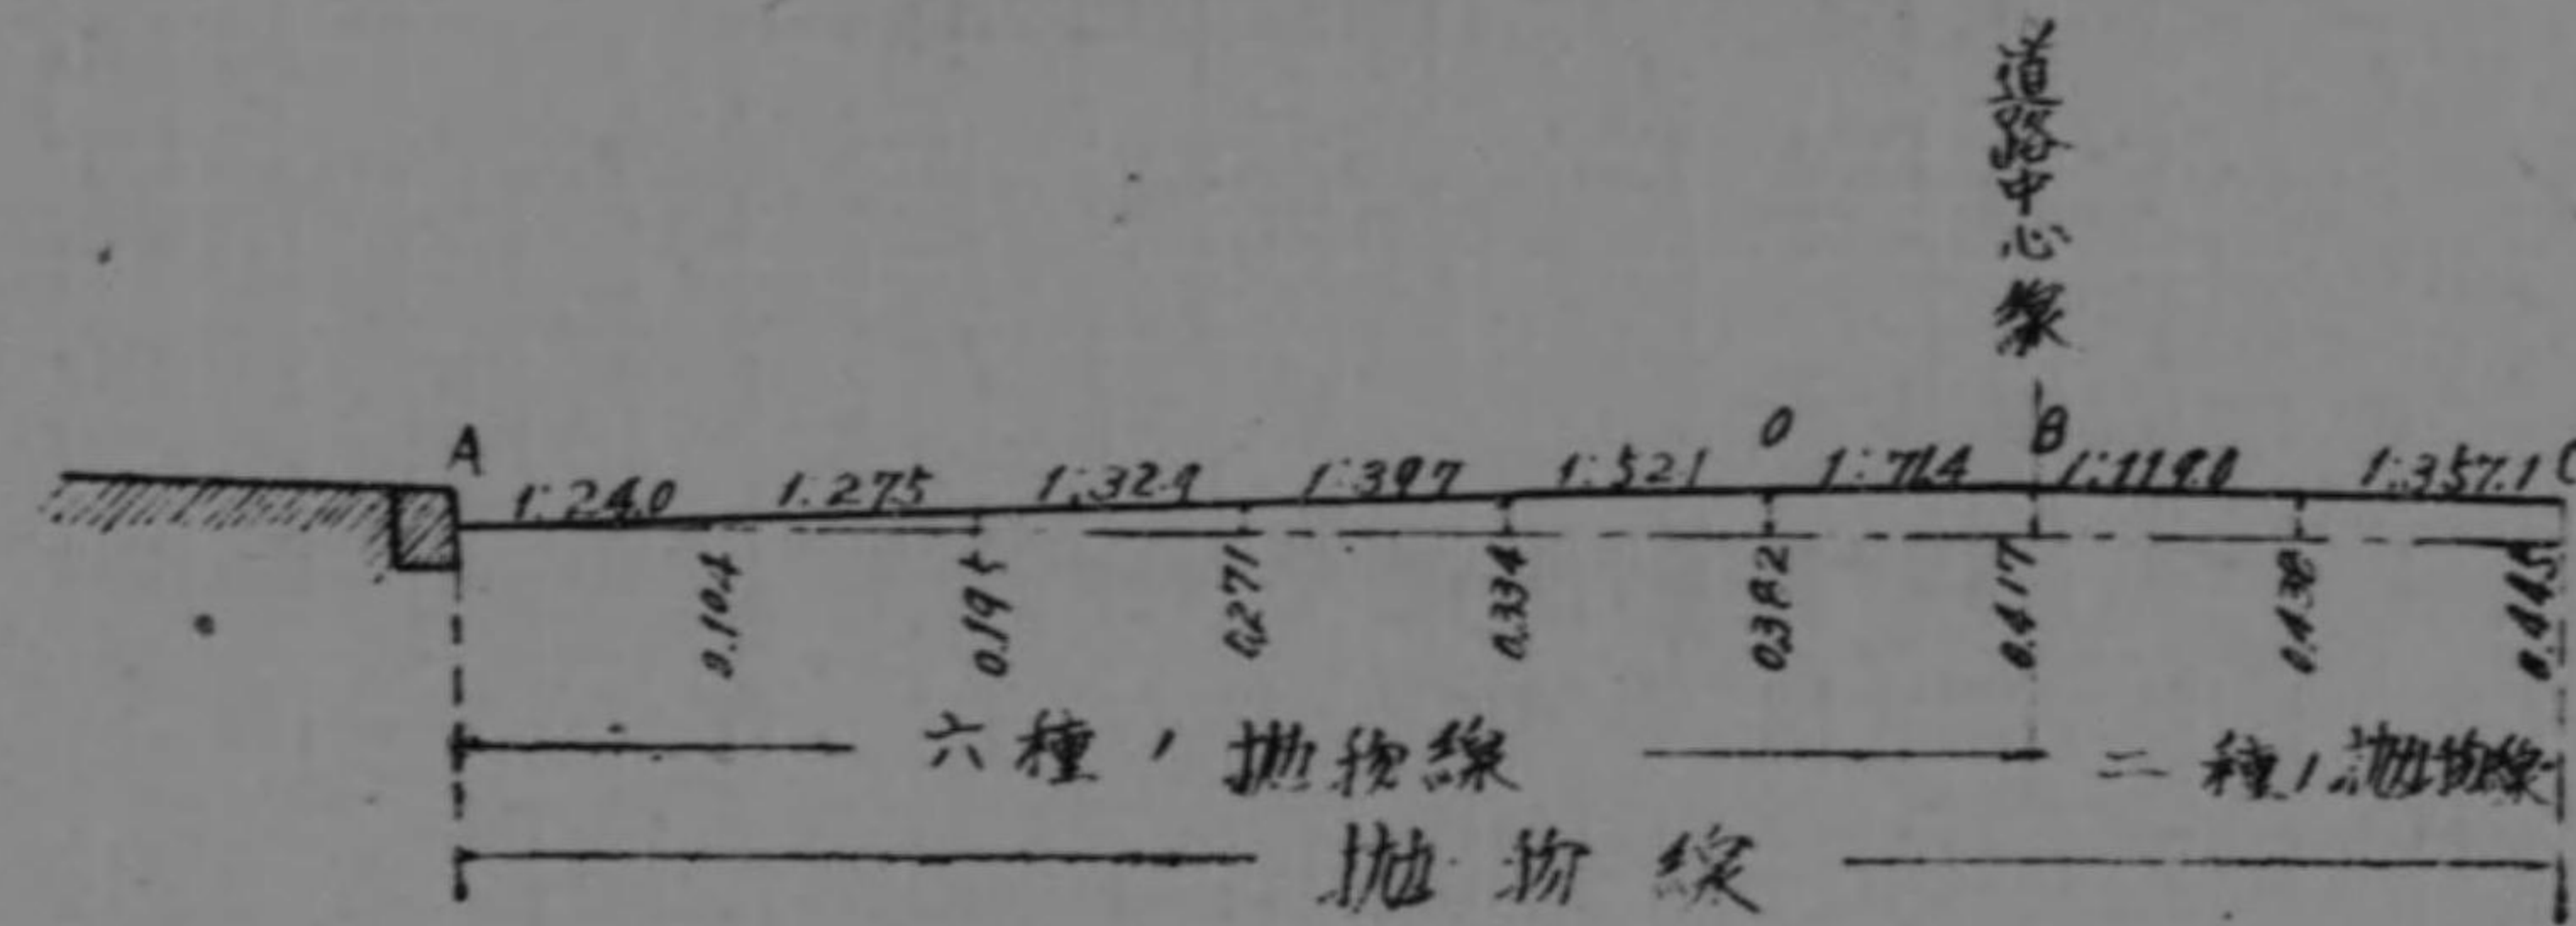 道路中心線
A
O
B
1:24.0
1:27.5
1:32.9
1:39.7
1:52.1
1:71.4
1:119.0
1:357.1
0.104
0.195
0.271
0.334
0.382
0.417
0.438
0.445
六種ノ抛物線
二種ノ抛物線
抛物線